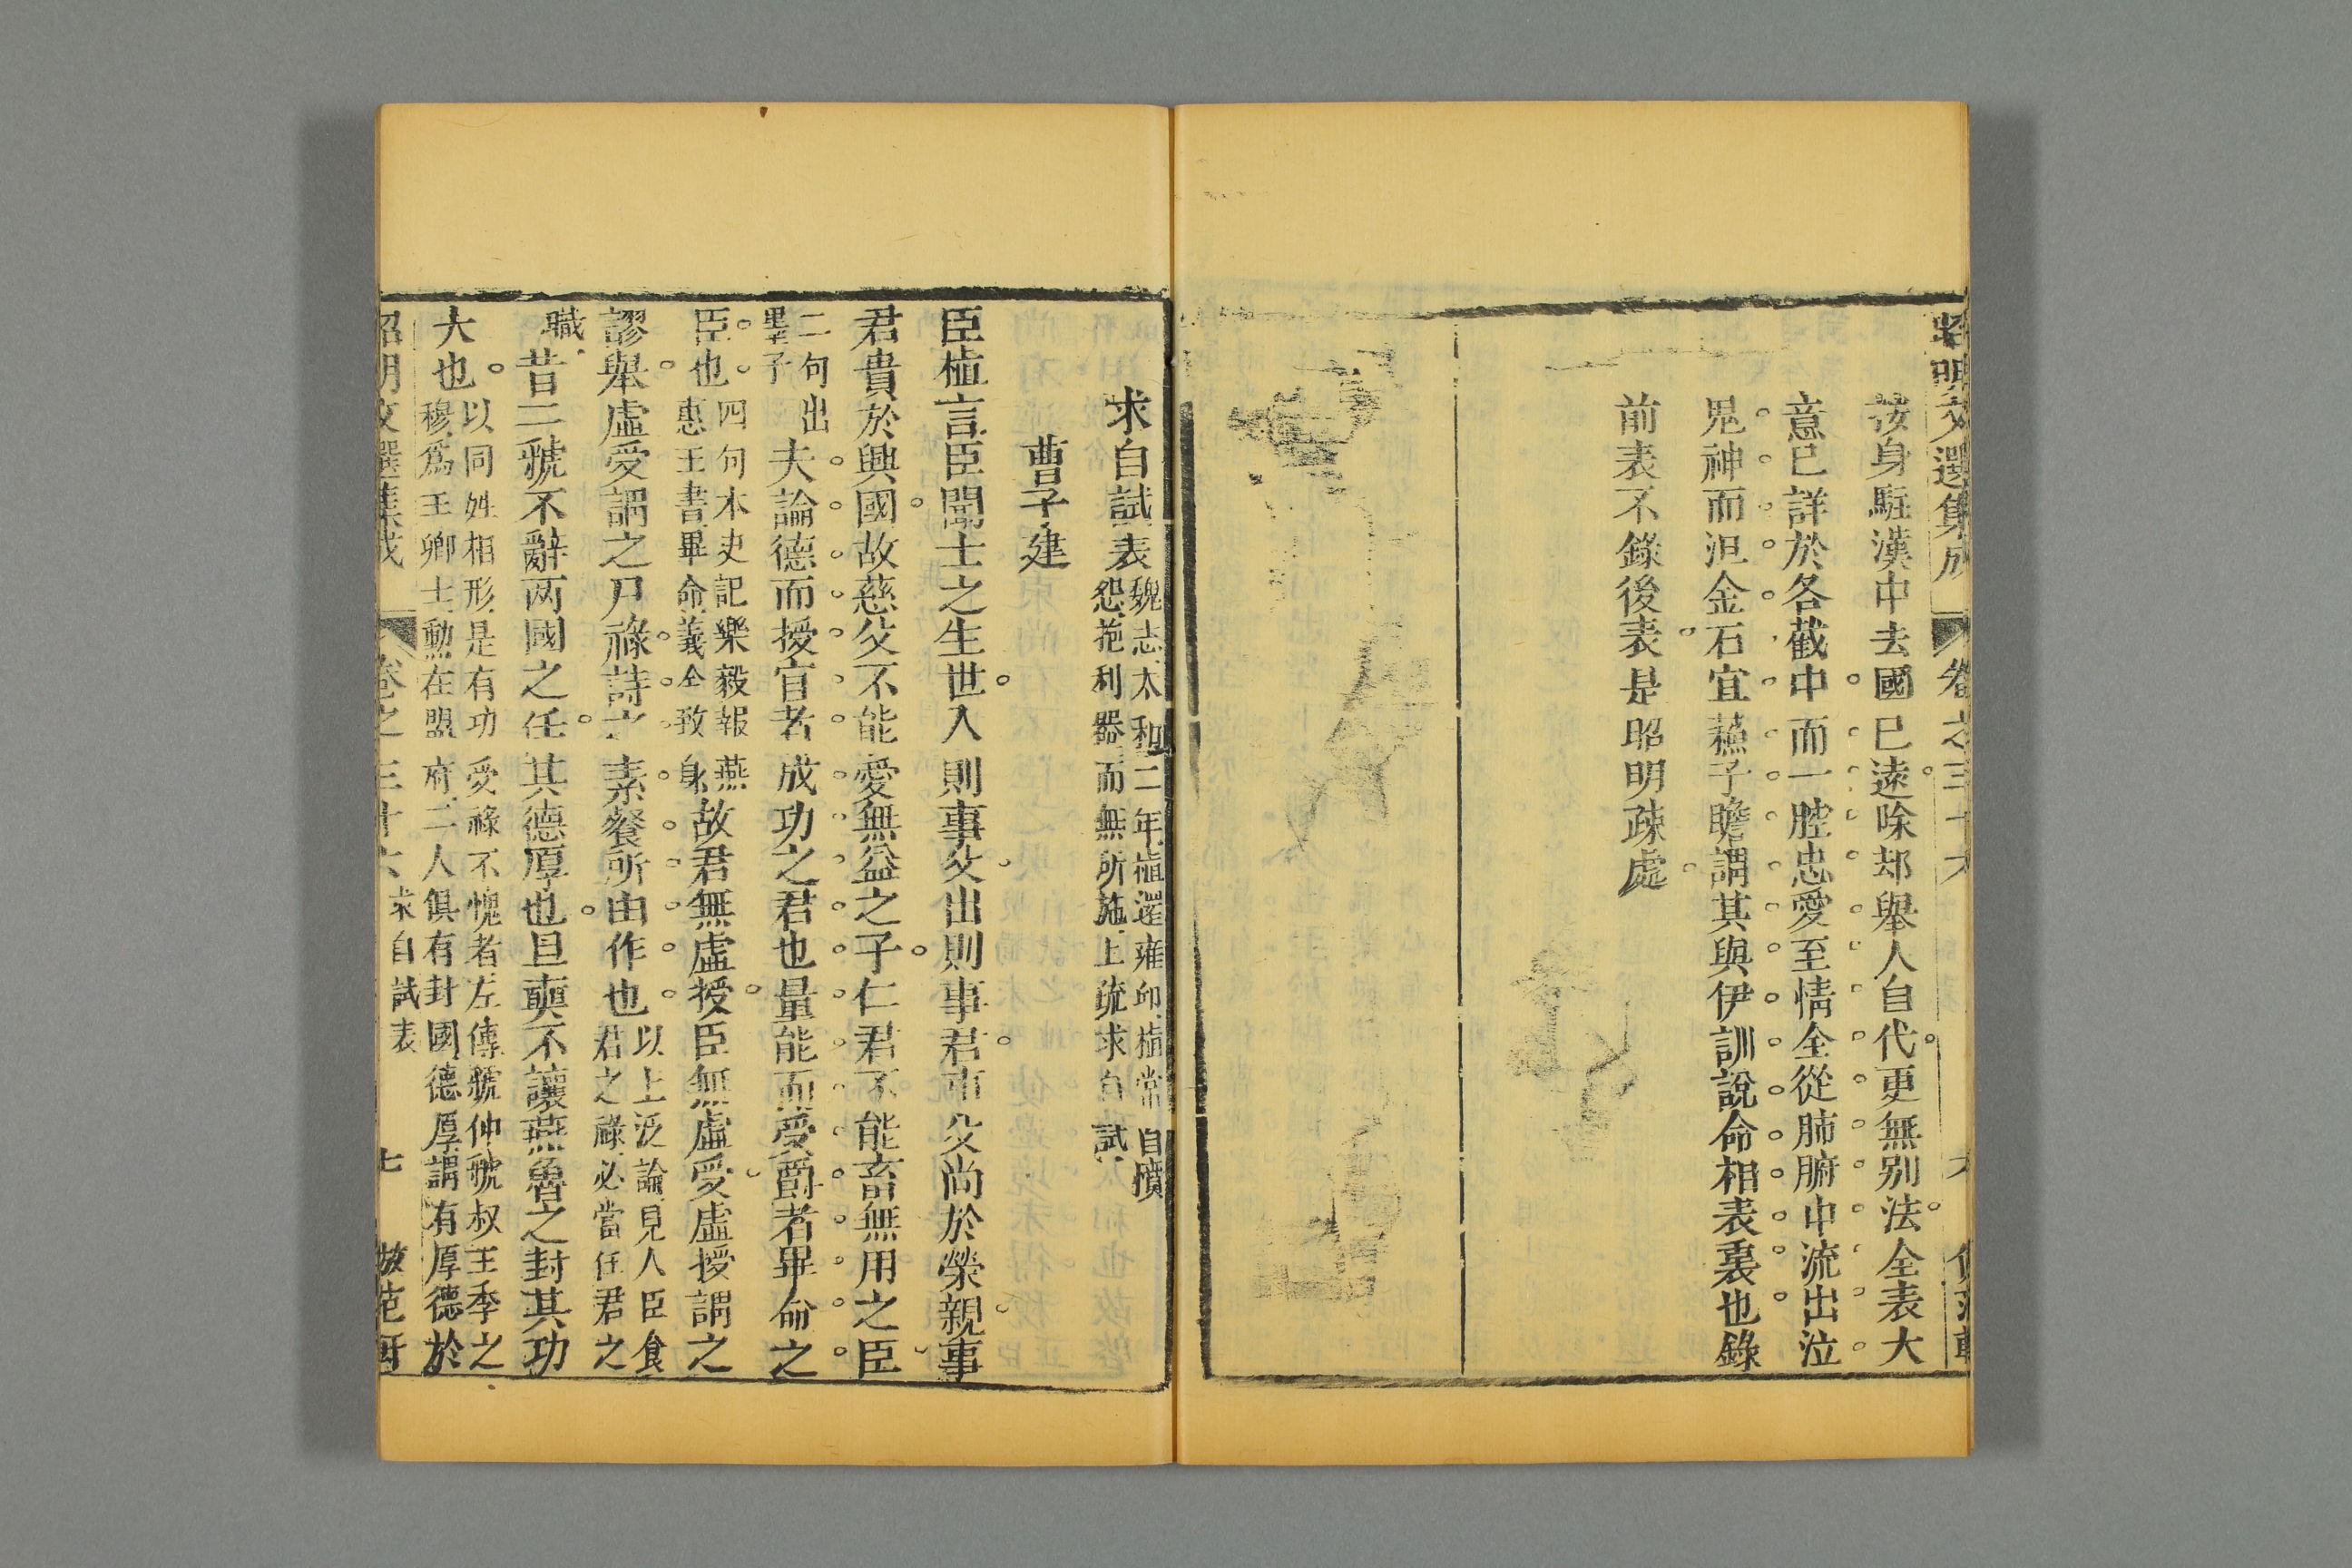 昭明文選集成 卷之三十六
按身駐漢中去國已遠除却舉人自代更無别法全表大
意已詳於各截中而一腔忠愛至情全從肺腑中流出泣
鬼神而泹金石宜蘓子瞻謂其與伊訓說命相表裏也錄
前表不錄後表是昭明疎處
求自試表 魏志太和二年植還雍邱植常自憤
怨抱利器而無所施上疏求自試
曹子建
臣植言臣聞士之生世入則事父出則事君事父尚於榮親事
君貴於興國故慈父不能愛無益之子仁君不能畜無用之臣
二句出
墨子 夫論德而授官者成功之君也量能而受爵者畢命之
臣也 四句本史記樂毅報燕
惠王書畢命義全致身 故君無虛授臣無虛受虛授謂之
謬舉虛受謂之尸祿詩之素餐所由作也 以上泛論見人臣食
君之祿必當任君之
職 昔二虢不辭两國之任其德厚也旦奭不讓燕魯之封其功
大也 以同姓相形是有功受祿不愧者左傳虢仲虢叔王季之
穆爲王卿士勳在盟府二人俱有封國德厚謂有厚德於
昭明文選集成 卷之三十六 求自試表 七